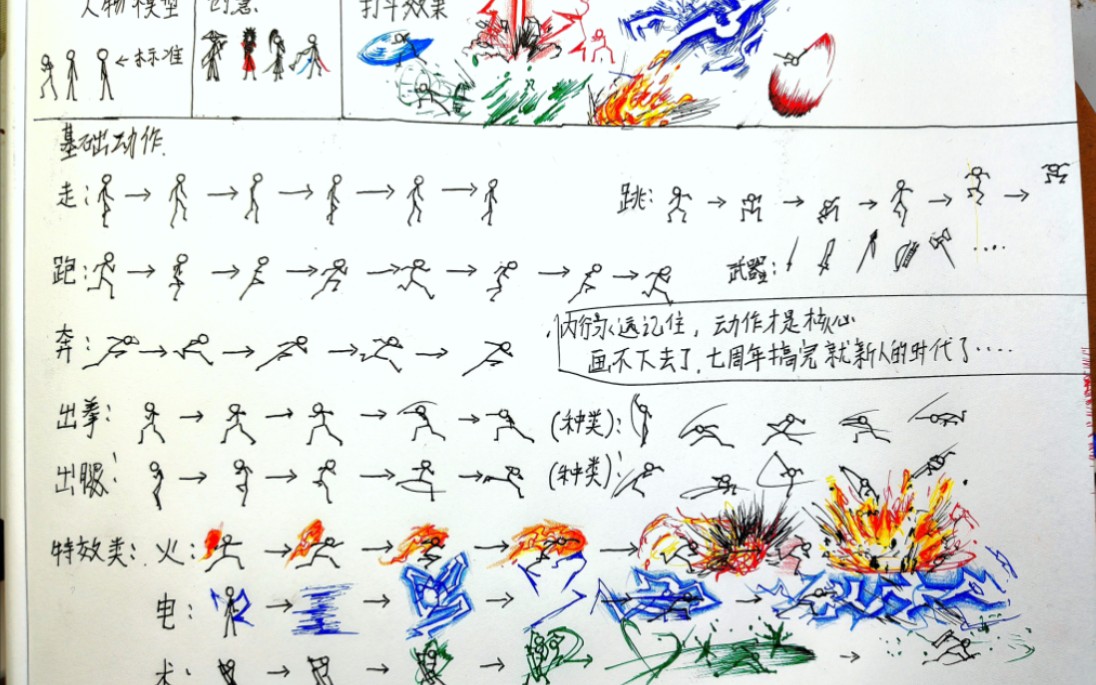 人物模型
创意
打斗效果
←标准
基础动作
走:
跳:
跑:
武器:
....
奔:
内行永远记住,动作才是核心
画不下去了,七周年搞完就新人的时代了....
出拳:
(种类):
出腿:
(种类):
特效类:火:
电: